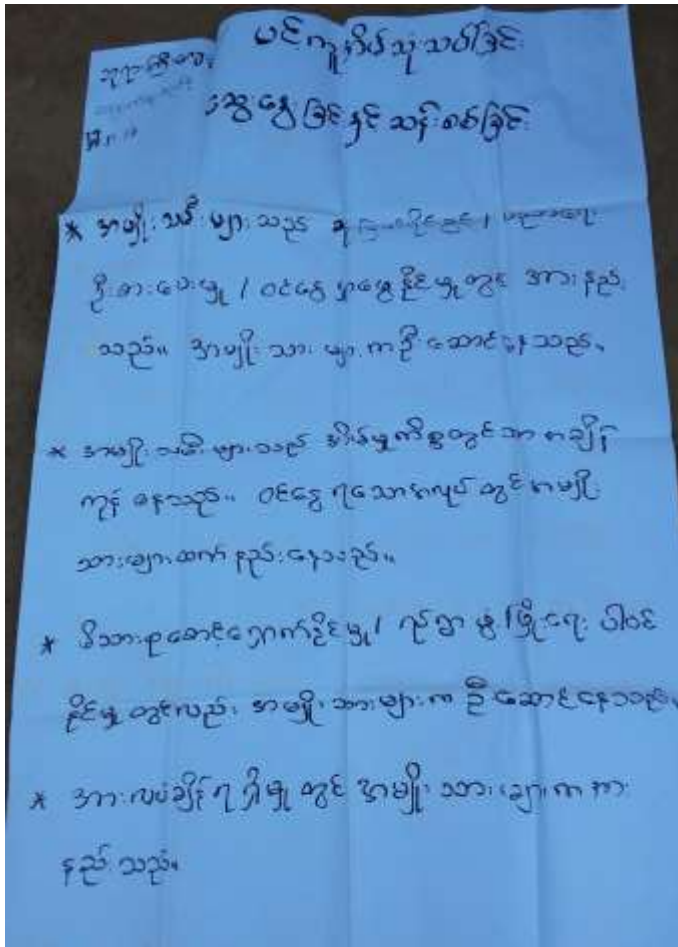 မင်ကူ သုံးသပ်ခြင်း
ဆွေးနွေးခြင်းနှင့် ဆန်းစစ်ခြင်း
* အမျိုးသမီးများသည်
ဦးစားပေးမှု / ဝင်ငွေရှာဖွေနိုင်မှုတွင် အားနည်း
သည်။ အမျိုးသားများကဦးဆောင်နေသည်။
* အမျိုးသမီးများသည် အိမ်မှုကိစ္စတွင်သာအချိန်
ကုန်နေသည်။ ဝင်ငွေရသောအလုပ်တွင်အမျိုး
သားများထက်နည်းနေသည်။
* မိသားစုစောင့်ရှောက်နိုင်မှု/ ရပ်ရွာဖွံ့ဖြိုးရေး ပါဝင်
နိုင်မှုတွင်လည်း အမျိုးသားများကဦးဆောင်နေသည်။
* အားလပ်ချိန်ရရှိမှုတွင် အမျိုးသားများက
နည်းသည်။